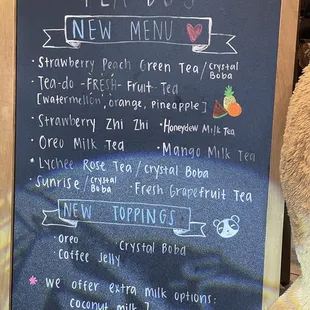 NEW MENU
• Strawberry Peach Green Tea / Crystal Boba
• Tea-do -FRESH- Fruit Tea
[watermellon, orange, pineapple]
• Strawberry Zhi Zhi • Honeydew Milk Tea
• Oreo Milk Tea • Mango Milk Tea
* Lychee Rose Tea / crystal Boba
• Sunrise / Crystal Boba • Fresh Grapefruit Tea
NEW TOPPINGS
• Oreo • Crystal Boba
• Coffee Jelly
* We offer extra milk options:
coconut milk ]